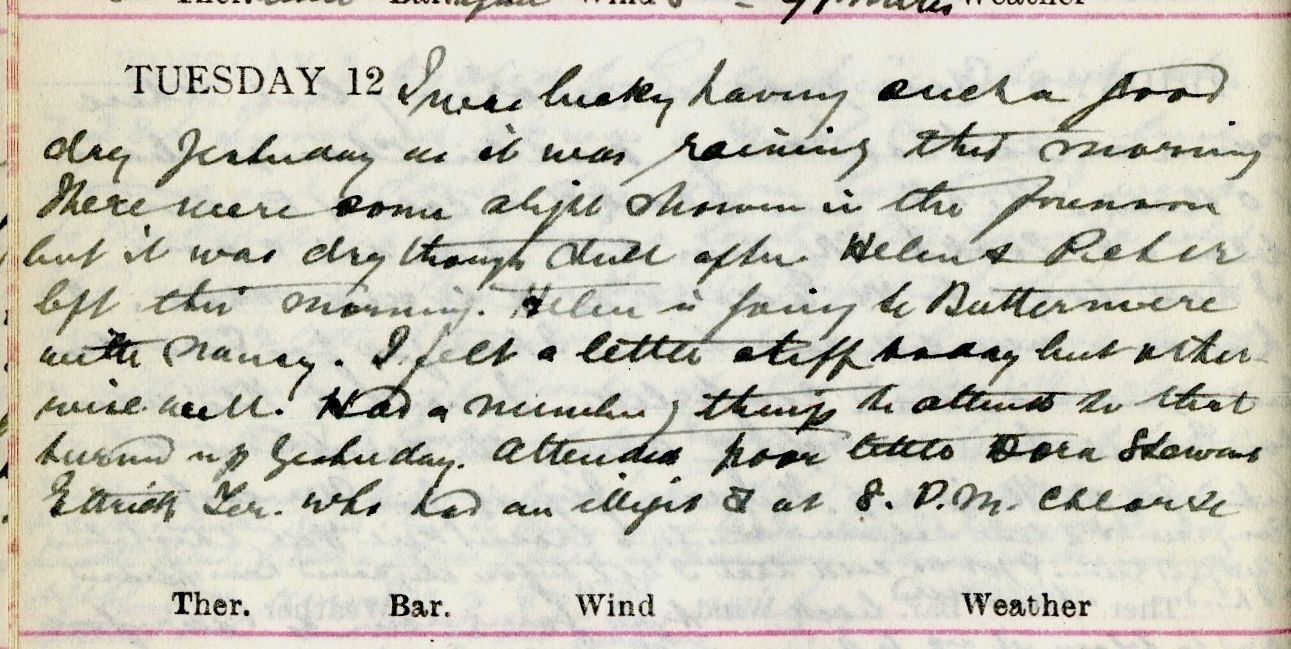 Ther. Bar. Wind Weather
TUESDAY 12 I were lucky having such a good
day yesterday as it was raining this morning
There were some slight showers in the forenoon
but it was dry though dull after. Helen & Peter
left this morning. Helen is going to Buttermere
with Nancy. I felt a little stiff today but other-
wise well. Had a number of things to attend to that
turned up yesterday. Attended poor little Dora Stewart
Ettrick Ter. who had an illegit at 8. P.M.
Ther. Bar. Wind Weather